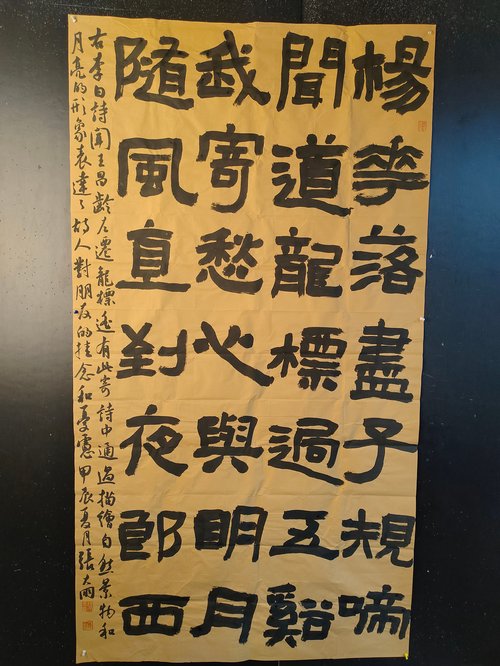 楊花落盡子規啼
聞道龍標過五谿
我寄愁心與明月
隨風直到夜郎西
右李白詩聞王昌齡左遷龍標遙有此寄詩中通過描繪自然景物和
月亮的形象表達了詩人對朋友的掛念和憂慮甲辰夏月張大國